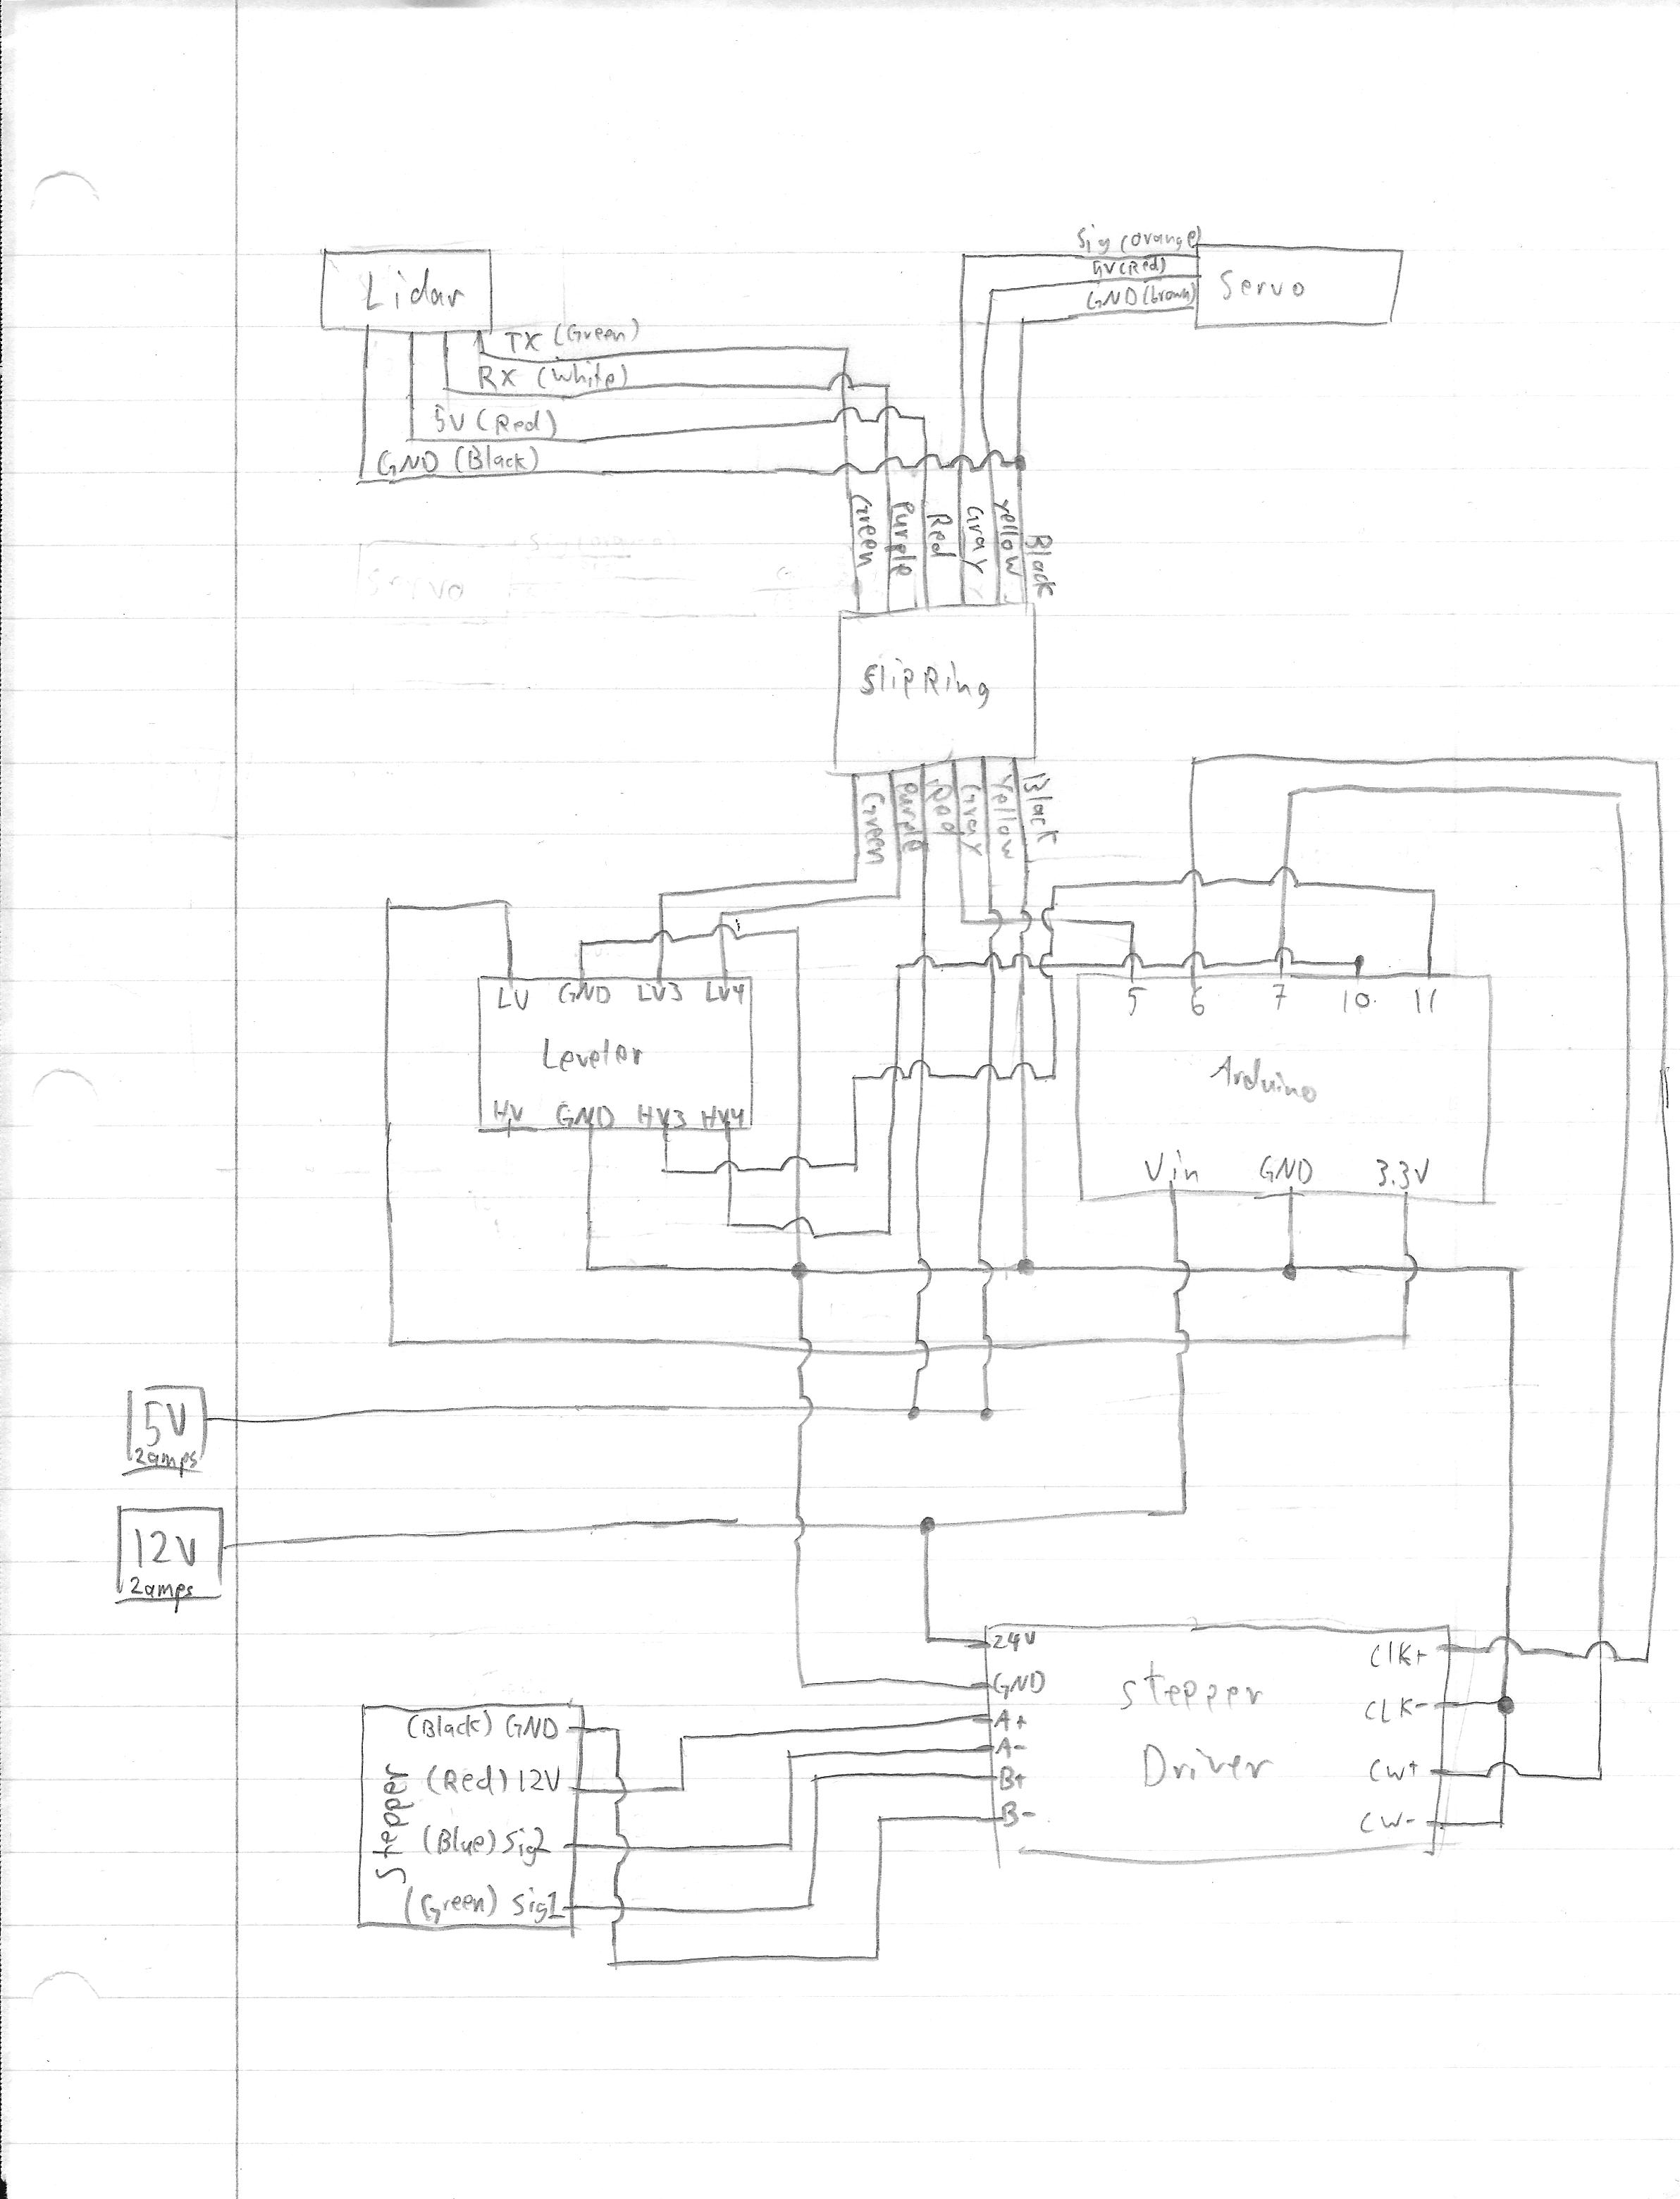 Sig (orange)
5V (Red)
GND (brown)
Servo
Lidar
TX (Green)
RX (White)
5V (Red)
GND (Black)
Green
Purple
Red
Gray
yellow
Black
Servo
SlipRing
Green
Purple
Red
Gray
Yellow
Black
LV GND LV3 LV4
Leveler
HV GND HV3 HV4
5 6 7 10 11
Arduino
Vin GND 3.3V
5V
2amps
12V
2amps
24V
GND
A+
A-
B+
B-
Stepper
Driver
CLK+
CLK-
CW+
CW-
Stepper
(Black) GND
(Red) 12V
(Blue) Sig2
(Green) Sig1